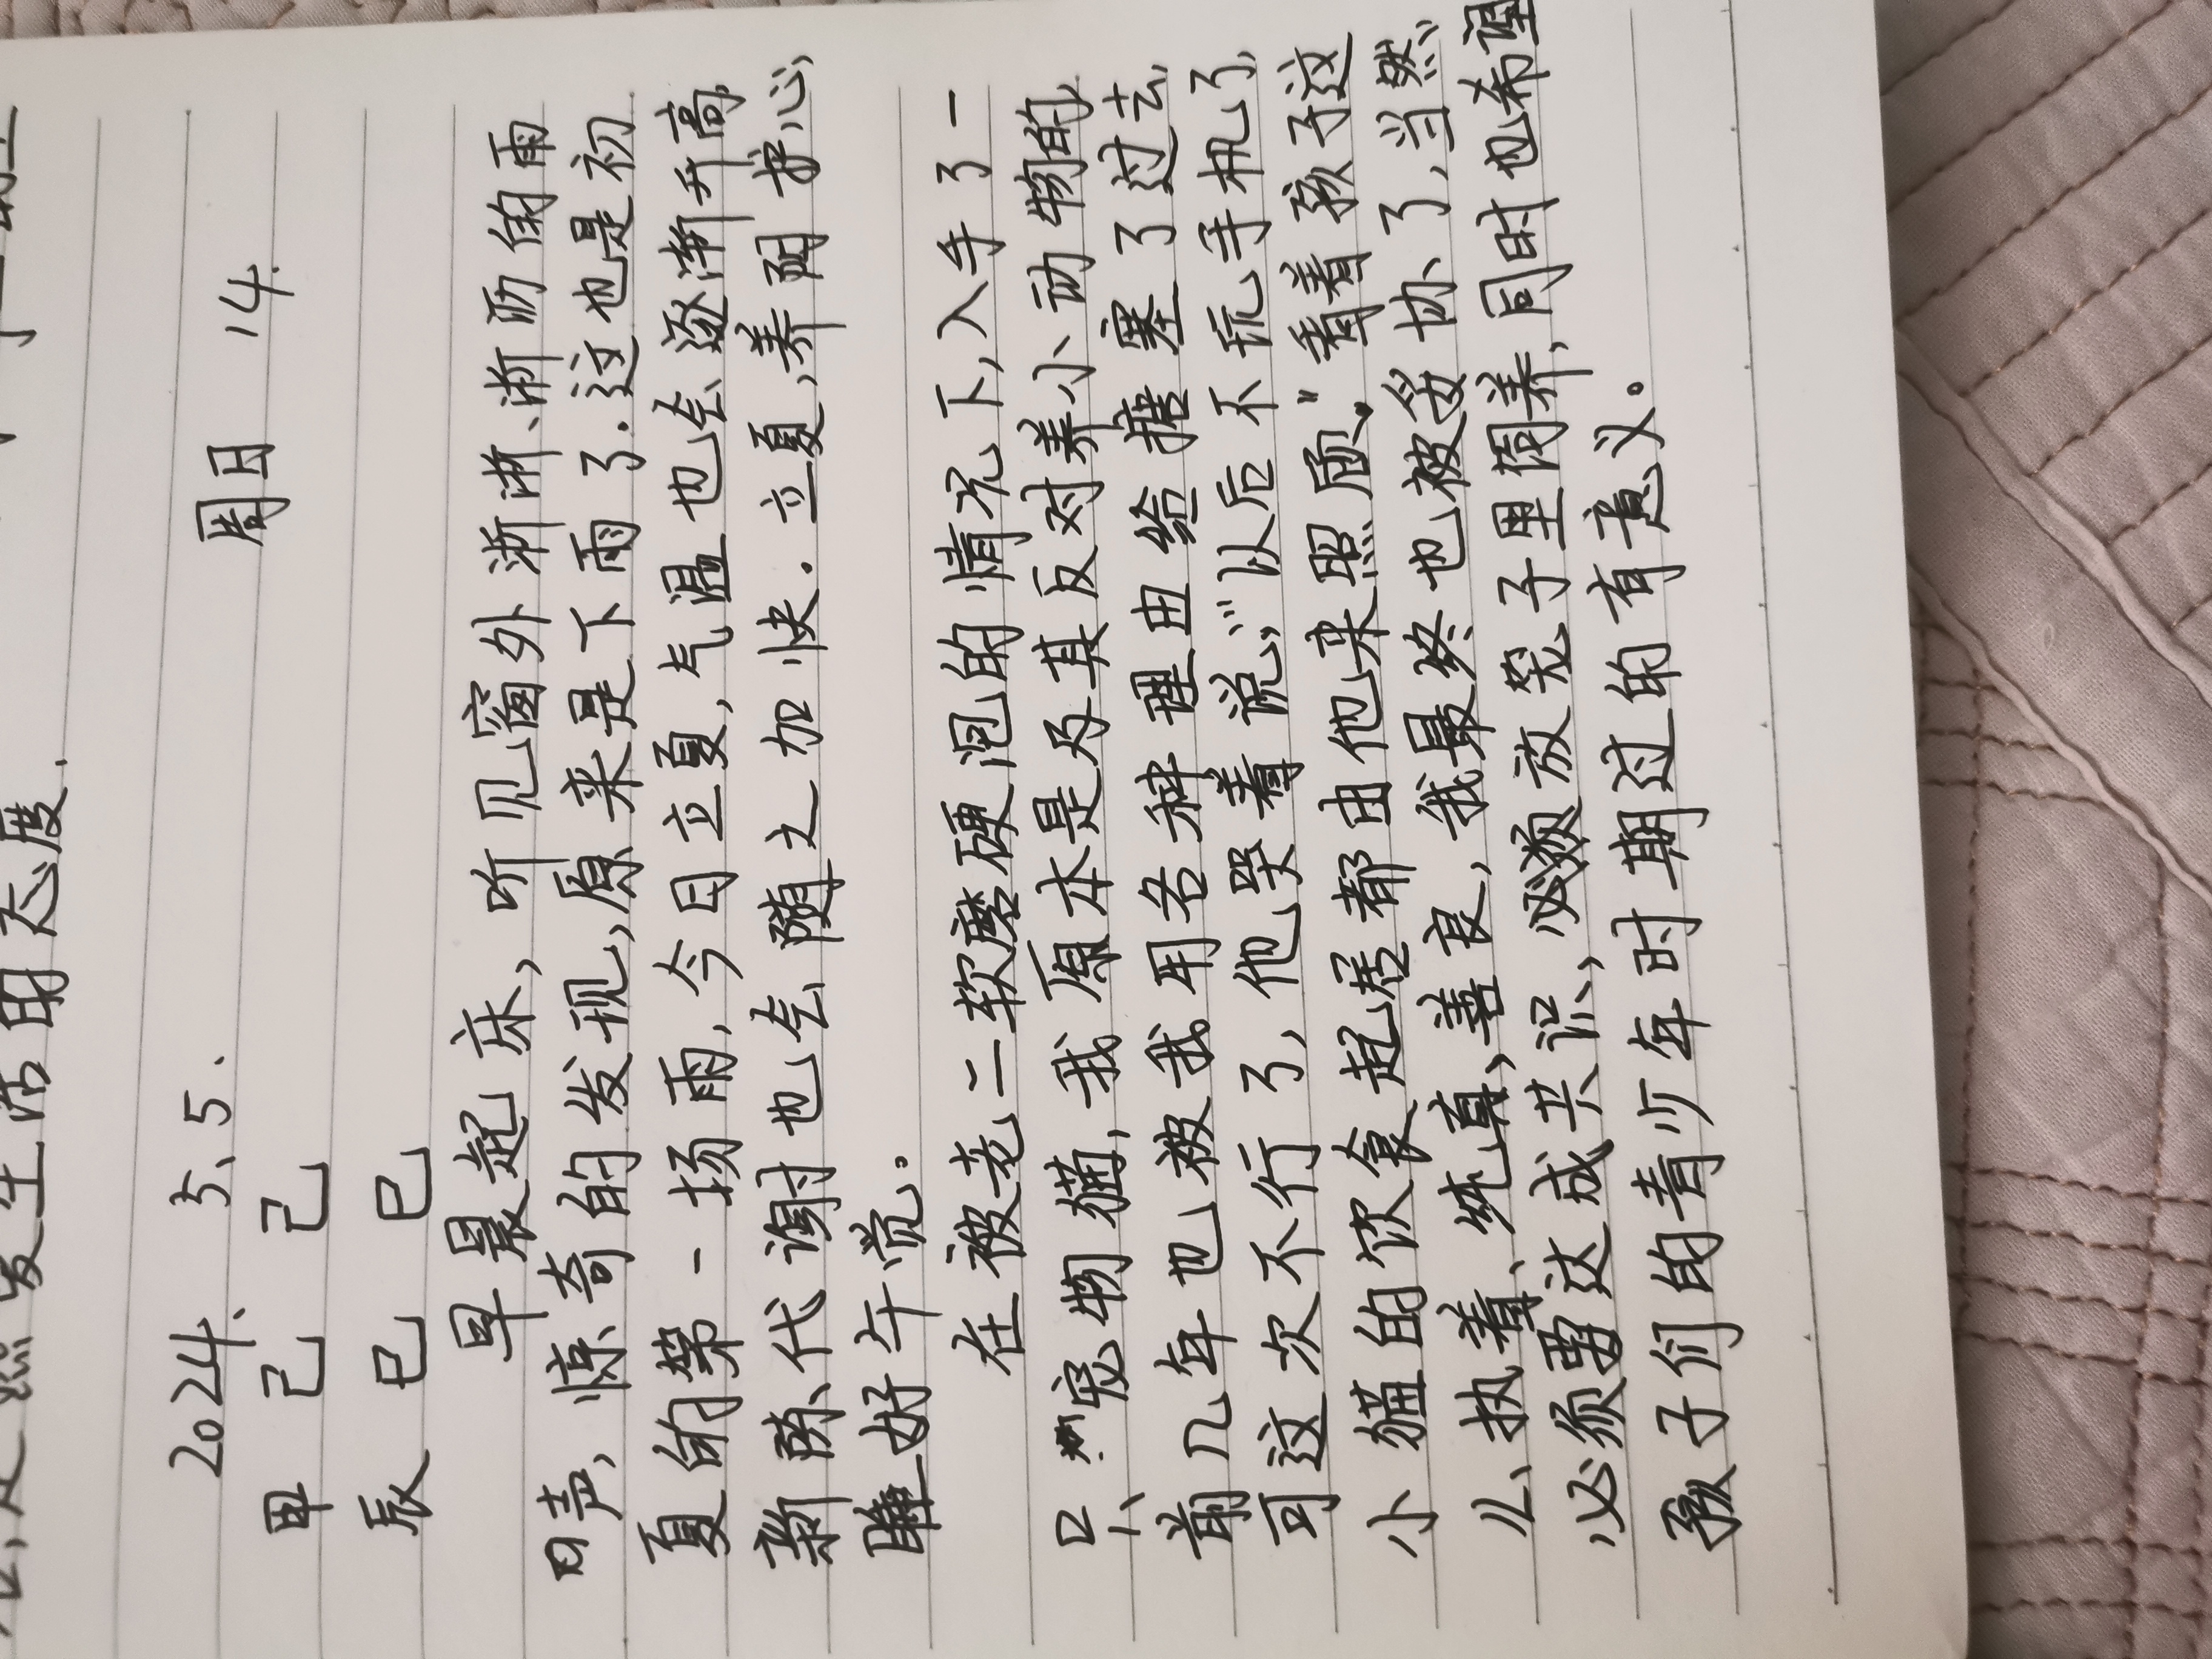 照发生活的态度.
2024、5、5.
周日 14.
甲 己 己
辰 巳 巳
早晨起床，听见窗外淅淅、淅沥的雨
声，惊奇的发现，原来是下雨了.这也是初
夏的第一场雨，今日立夏，气温也会逐渐升高，
新陈代谢时也会随之加快.立夏，养阳护心，
睡好午觉。
在被老二软磨硬泡的情况下，入手了一
只宠物猫，我原本是及其反对养小动物的，
前几年也被我用各种理由给搪塞了过去，
可这次不行了，他哭着说，“以后不玩手机了，
小猫的饮食起居都由他来照顾。”看着孩子这
么执着、纯真、善良，我最终也被妥协了，当然，
必须要达成共识，必须放笼子里饲养，同时也希望
孩子们的青少年时期过的有意义。